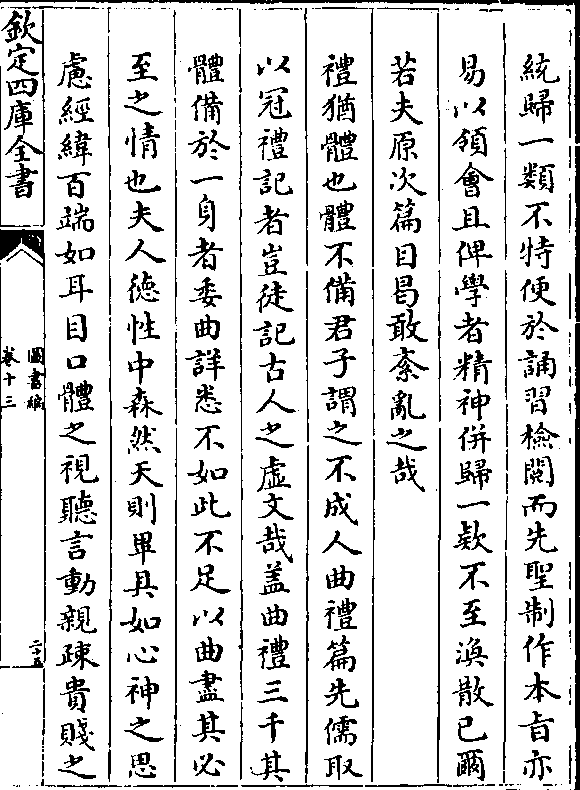 統歸一類不特便於誦習檢閱而先聖制作本旨亦
易以領會且俾學者精神併歸一欵不至渙散已爾
若夫原次篇目曷敢紊亂之哉
禮猶體也體不備君子謂之不成人曲禮篇先儒取
以冠禮記者豈徒記古人之虛文哉蓋曲禮三千其
體備於一身者委曲詳悉不如此不足以曲盡其必
至之情也夫人德性中森然天則畢具如心神之思
慮經緯百端如耳目口體之視聽言動親疎貴賤之
欽定四庫全書
圖書編
卷十三
二十五